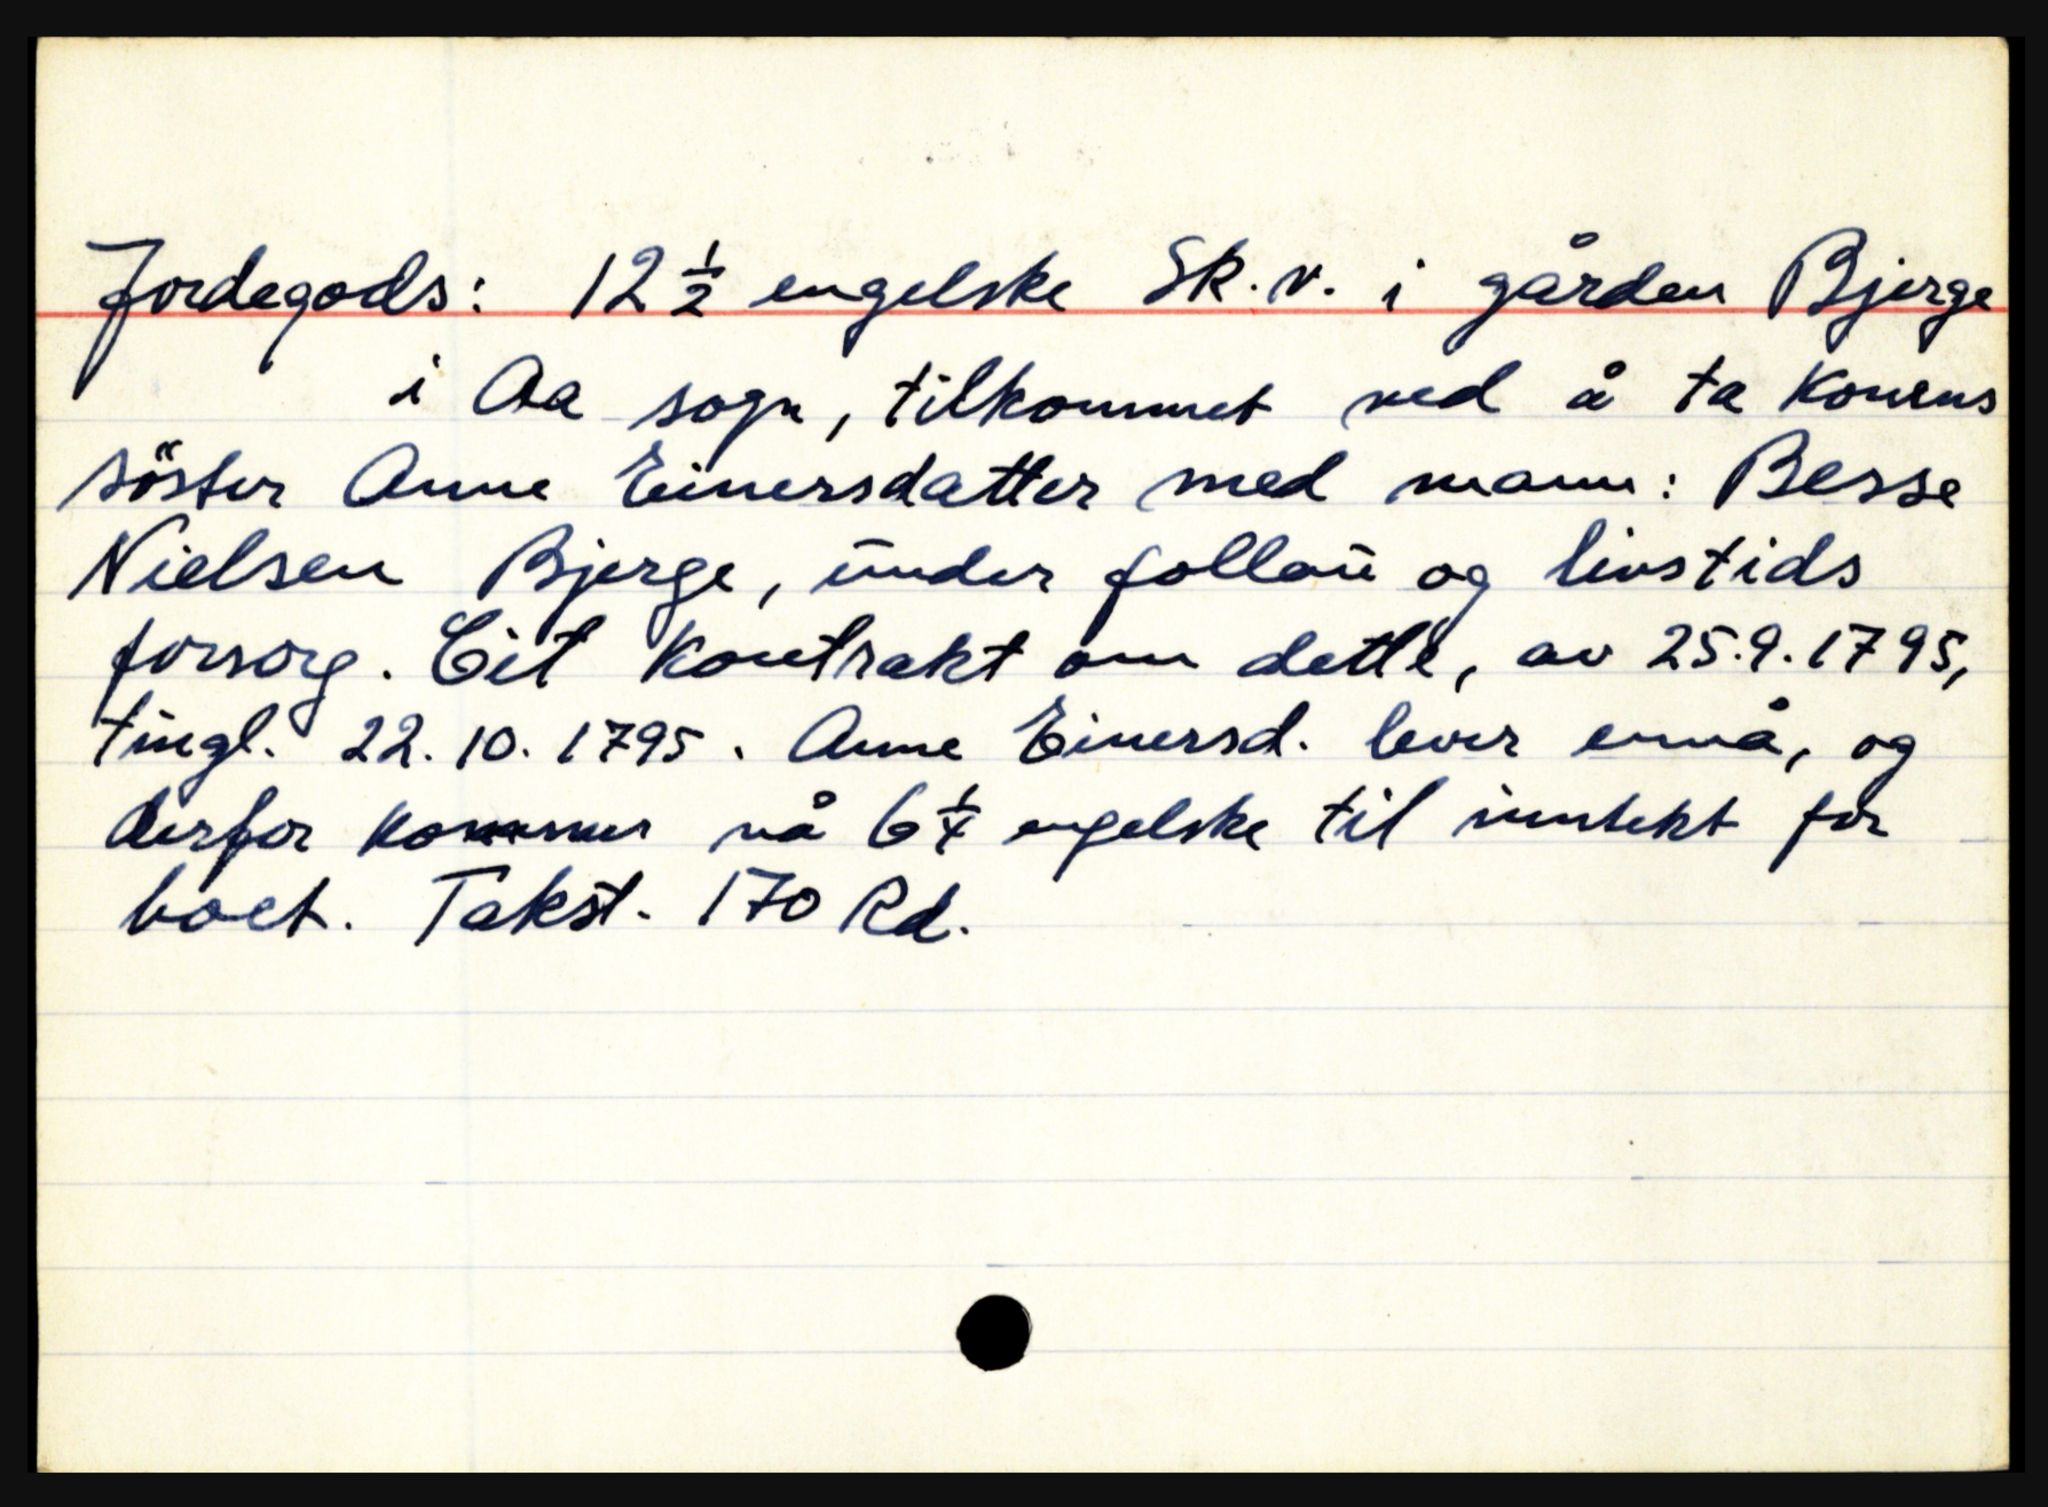 Jordegods: 12 1/2 engelske Sk.v. i gården Bjerge
i Aa sogn, tilkommet ved å ta Konens
söster Anne Einersdatter med mann: Besse
Nielsen Bjerge, under follau og livstids
forsorg. Cit Kontrakt om dette, av 25.9.1795,
tingl. 22.10.1795. Anne Einersd. lever ennå, og
derfor kommer nå 6 1/4 engelske til inntekt for
boet. Takst. 170 Rd.